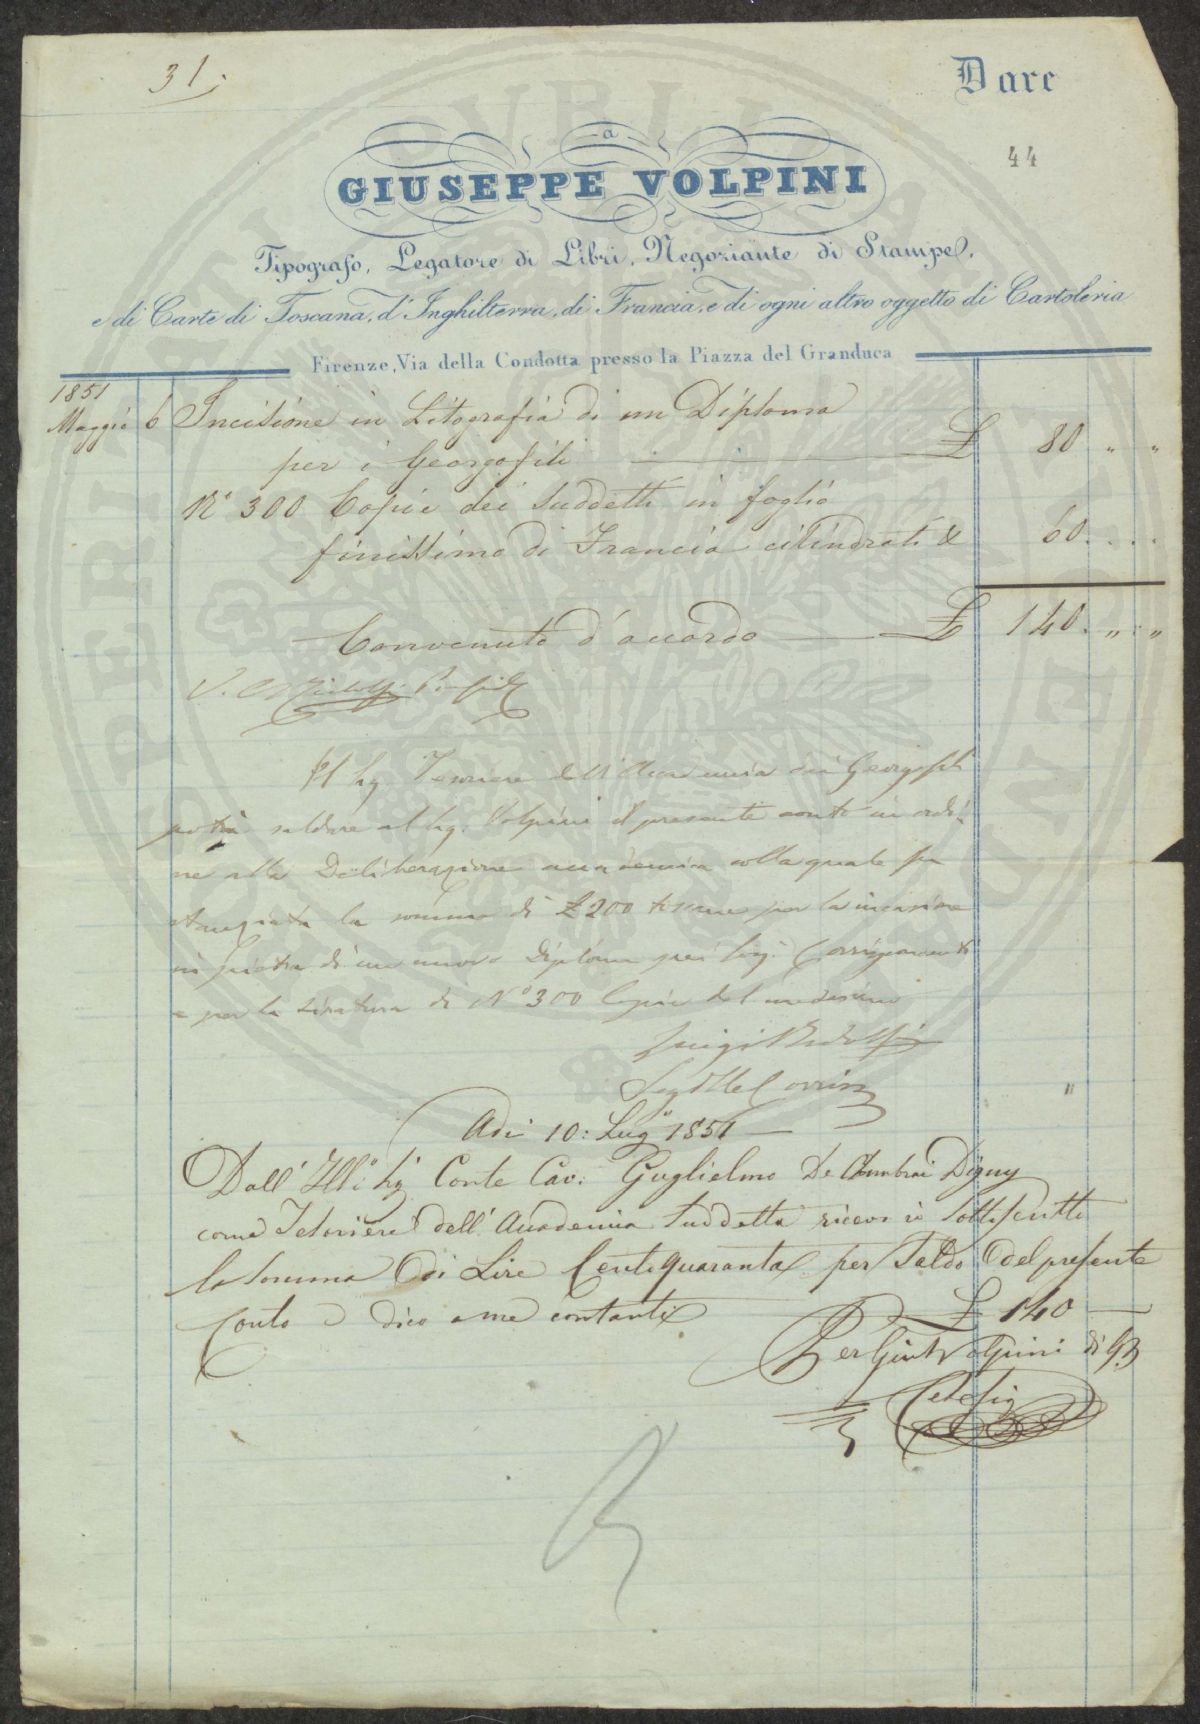 31.
Dare
44
a
GIUSEPPE VOLPINI
Tipografo, Legatore di Libri, Negoziante di Stampe,
e di Carte di Toscana, d'Inghilterra, di Francia, e di ogni altro oggetto di Cartoleria
Firenze, Via della Condotta presso la Piazza del Granduca
1851
Maggio 6 Incisione in Litografia di un Diploma
per i Georgofili £ 80 " "
N° 300 Copie dei Suddetti in foglio
finissimo di Francia cilindrati £ 60 . . . .
Convenuto d'accordo £ 140 . " . "
Il Sig Tesoriere dell'Accademia dei Georgofili
potrà saldare al Sig. Volpini il presente conto in ordi-
ne alla Deliberazione accademica colla quale fu
stanziata la somma di £ 200 toscane per la incisione
in pietra di un nuovo Diploma pei Sigi. Corrispondenti
e per la tiratura di N° 300 Copie del medesimo
Luigi Ridolfi
Seg delle Corrisp
Adi 10: Lug° 1851
Dall' Ill°: Sig Conte Cav: Guglielmo De Cambrai Digny
come Tesoriere dell' Accademia Suddetta ricevo io Sottoscritto
la Somma di Lire Centoquaranta per Saldo del presente
Conto dico a me contanti £ 140
Per Giu Volpini di GB